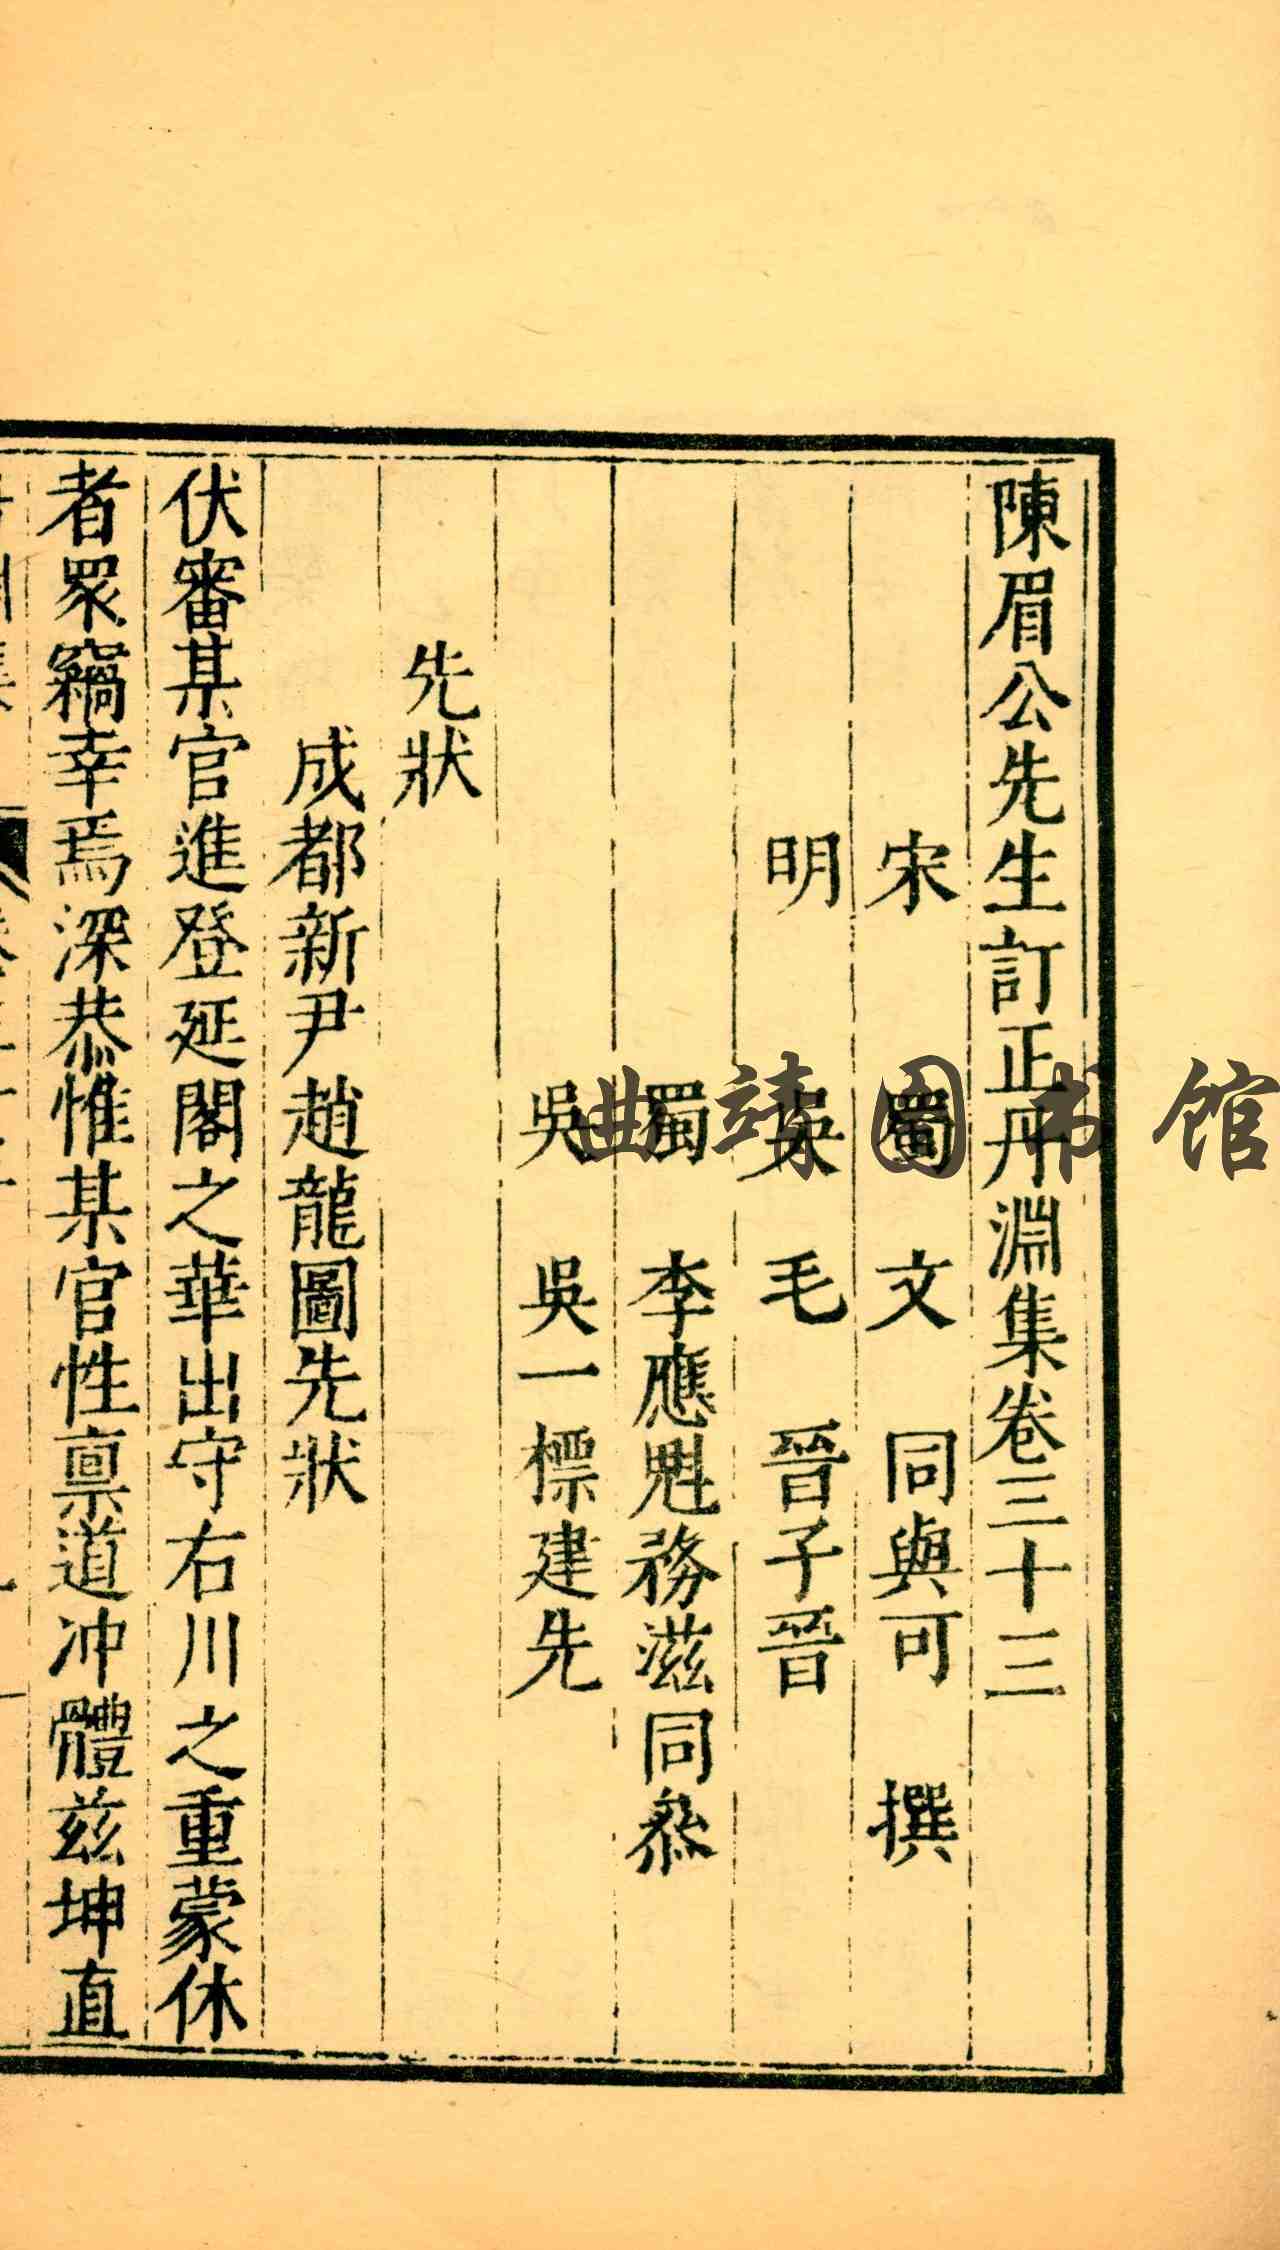 陳眉公先生訂正丹淵集卷三十三
宋 蜀 文 同與可 撰
明 吳 毛 晉子晉
蜀 李應魁務滋同叅
吳 吳一標建先
先狀
成都新尹趙龍圖先狀
伏審某官進登延閣之華出守右川之重蒙休
者眾竊幸焉深恭惟某官性禀道冲體兹坤直
曲靖图书馆